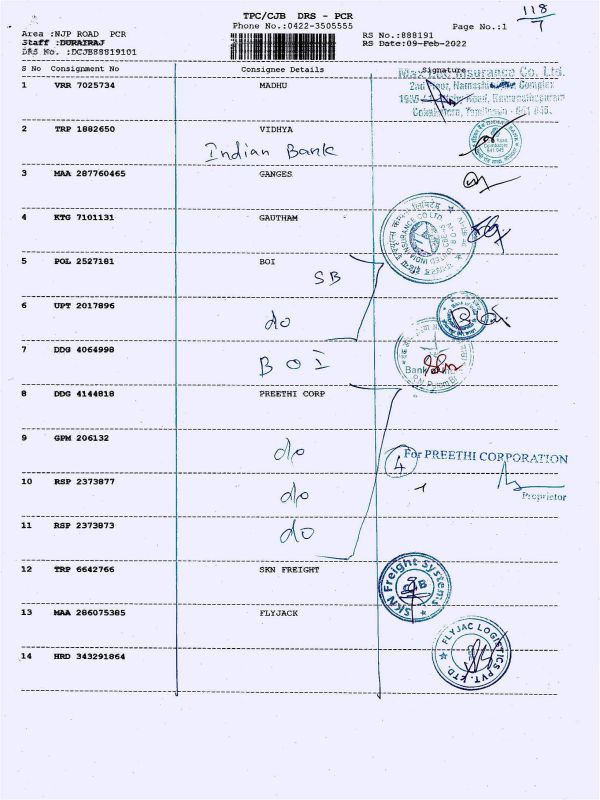 118/1
TPC/CJB DRS - PCR
Phone No.:0422-3505555
Page No.:1
Area :NJP ROAD PCR
Staff :DURAIRAJ
DRS No. :DCJB88819101
RS No.:888191
RS Date:09-Feb-2022
S No Consignment No Consignee Details Signature
1 VRR 7025734 MADHU
Insurance Co. Ltd.
Complex
2 TRP 1882650 VIDHYA
Indian Bank
3 MAA 287760465 GANGES
4 KTG 7101131 GAUTHAM
UNITED INDIA INSURANCE CO LTD
5 POL 2527181 BOI
SB
6 UPT 2017896 do
7 DDG 4064998 BOI
Bank
8 DDG 4144818 PREETHI CORP
9 GPM 206132 do
4 For PREETHI CORPORATION
Proprietor
10 RSP 2373877 do
11 RSP 2373873 do
12 TRP 6642766 SKN FREIGHT
SKN Freight Systems
13 MAA 286075385 FLYJACK
FLYJAC LOGISTICS PVT. LTD.
14 HRD 343291864